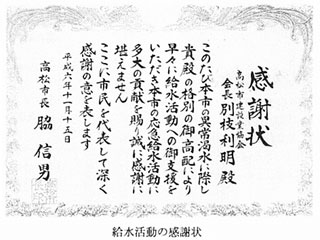 感謝状
高松市建設業協会
会長 別枝利明 殿
このたび本市の異常渇水に際し
貴殿の格別の御高配により
早々に給水活動への御支援を
いただき本市の応急給水活動に
多大の貢献を賜り誠に感謝に
堪えません
ここに市民を代表して深く
感謝の意を表します
平成六年十一月十五日
高松市長 脇 信男
給水活動の感謝状